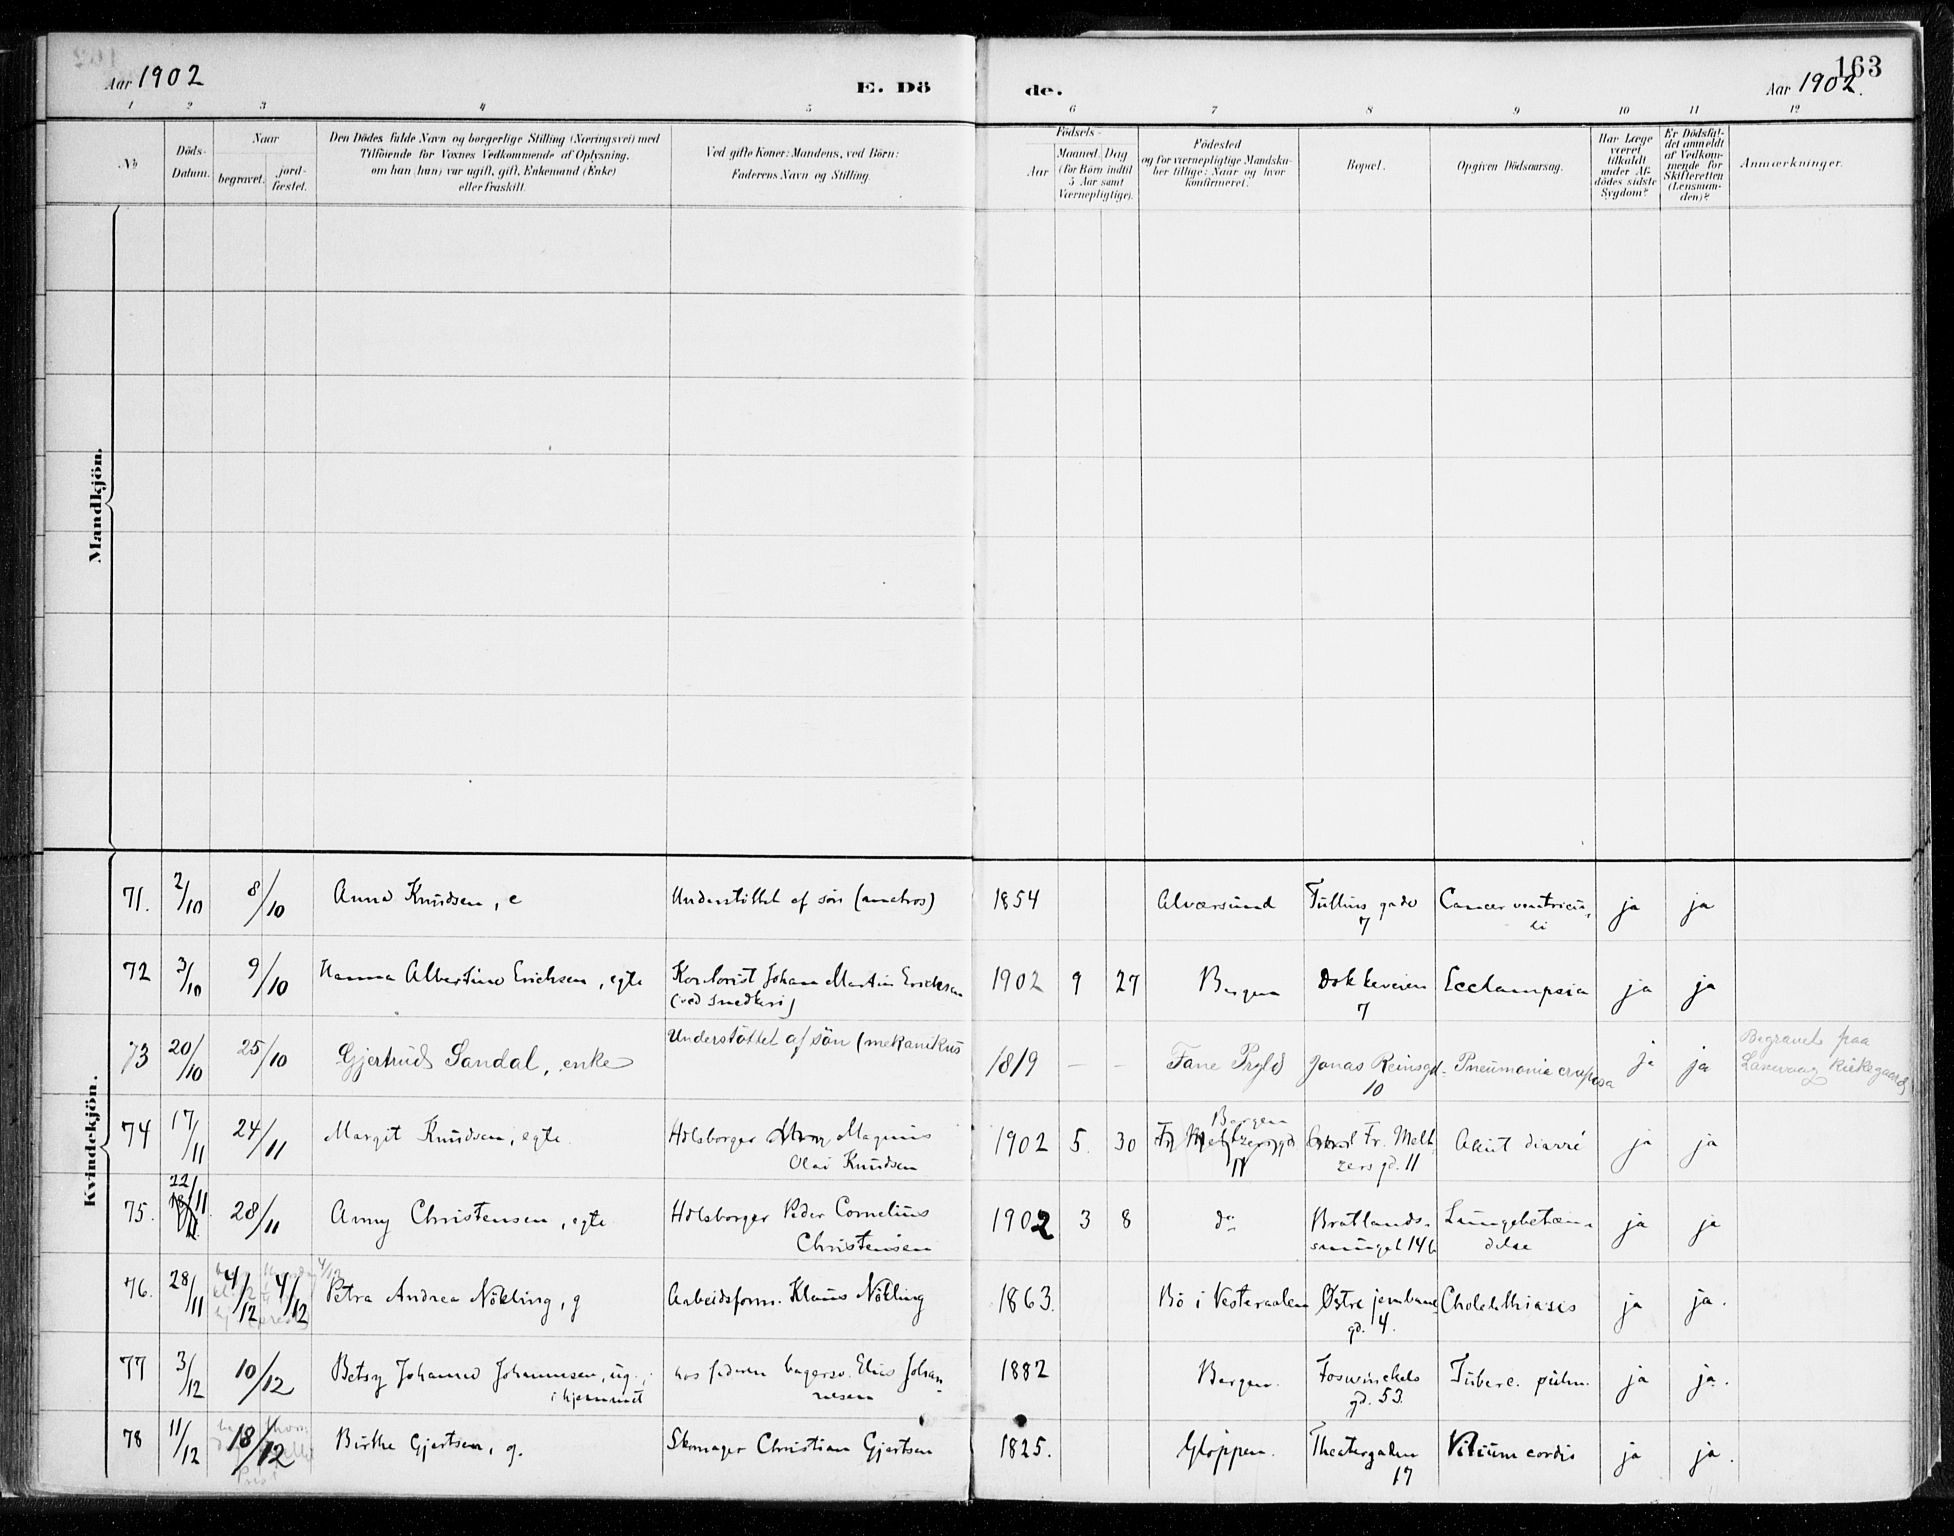 163
Aar 1902
E. Dö de.
Aar 1902.
1 2 3 4 5 6 7 8 9 10 11 12
No.
Döds-Datum.
Naar
begravet.
jord-fæstet.
Den Dödes fulde Navn og borgerlige Stilling (Næringsvei) med
Tilföiende for Voxnes Vedkommende af Oplysning,
om han (hun) var ugift, gift, Enkemand (Enke)
eller fraskilt.
Ved gifte Koner: Mandens, ved Börn:
Faderens Navn og Stilling.
Födsels-
Aar
Maaned. Dag
(for Börn indtil
5 Aar samt
Værnepligtige).
Födested
og for værnepligtige Mandska-
ber tillige: Naar og hvor
konfirmeret.
Bopæl.
Opgiven Dödsaarsag.
Har Læge
været
tilkaldt
under Af-
dödes sidste
Sygdom?
Er Dödsfal-
det anmeldt
af Vedkom-
mende for
Skifteretten
(Lensman-
den)?
Anmærkninger.
Mandkjön.
Kvindekjön.
71. 2/10 8/10 Anna Knudsen, e Understøttet af søn (matros) 1854 Alværsund Tullins gade 7 Cancer ventricu-li ja ja
72 3/10 9/10 Hanna Albertine Erichsen, egte Kontorist Johan Martin Erichsen (ved snedkeri) 1902 9 27 Bergen Dokkeveien 7 Ecclampsia ja ja
73 20/10 25/10 Gjertrud Sandal, enke Understøttet af sön (mekanikus 1819 – – Fane Prgld Jonas Reinsgd. 10 Pneumonia cruposa ja ja Begravet paa Laxevaag Kirkegaard
74 17/11 24/11 Margit Knudsen, egte. Hdlsborger Magnus Olai Knudsen 1902 5. 30 Bergen Fr. Meltzersgd 11 Fr. Melt-zers gd. 11 Akut diarré ja ja
75. 22/11 28/11 Anny Christensen, egte Hdlsborger Peder Cornelius Christensen 1902 3 8 do Bratlands-smuget 14b Lungebetæn-delse ja ja
76. 28/11 4/12 4/12 4/12 Petra Andrea Nökling, g Arbeidsform. Klaus Nökling 1863. Bö i Vesteraalen Østre jernbane gd. 4. Cholelithiasis ja ja.
77 3/12 10/12 Betsy Johanne Johannesen, ug., i hjemmet hos faderen bagersv. Elias Johan-nesen 1882 Bergen. Foswinckels gd. 53. Tuberc. pulm. ja ja.
78 11/12 18/12 Birthe Gjertsen, g. Skomager Christian Gjertsen 1825. Gloppen. Theatergaden 17 Vitium cordis ja ja.